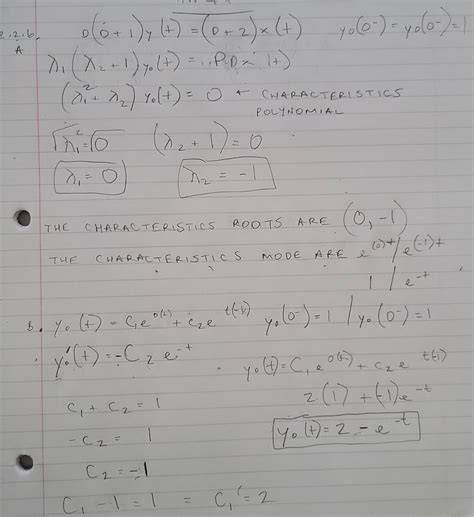 2.2.6. D(D+1)y(t) = (D+2)x(t) y₀(0⁻) = ẏ₀(0⁻) = 1
A
λ₁(λ₂+1)y₀(t) =
(λ₁² + λ₂) y₀(t) = 0 CHARACTERISTICS
POLYNOMIAL
√λ₁² = √0 (λ₂ + 1) = 0
λ₁ = 0 λ₂ = -1
THE CHARACTERISTICS ROOTS ARE (0, -1)
THE CHARACTERISTICS MODE ARE e^(0)t / e^(-1)t
1 / e^-t
b. y₀(t) = C₁e^0(t) + C₂e^t(-1) y₀(0⁻) = 1 / ẏ₀(0⁻) = 1
y₀'(t) = -C₂e^-t
y₀(t) = C₁e^0(t) + C₂e^t(-1)
C₁ + C₂ = 1
2(1) + (-1)e^-t
-C₂ = 1
y₀(t) = 2 - e^-t
C₂ = -1
C₁ - 1 = 1 = C₁ = 2